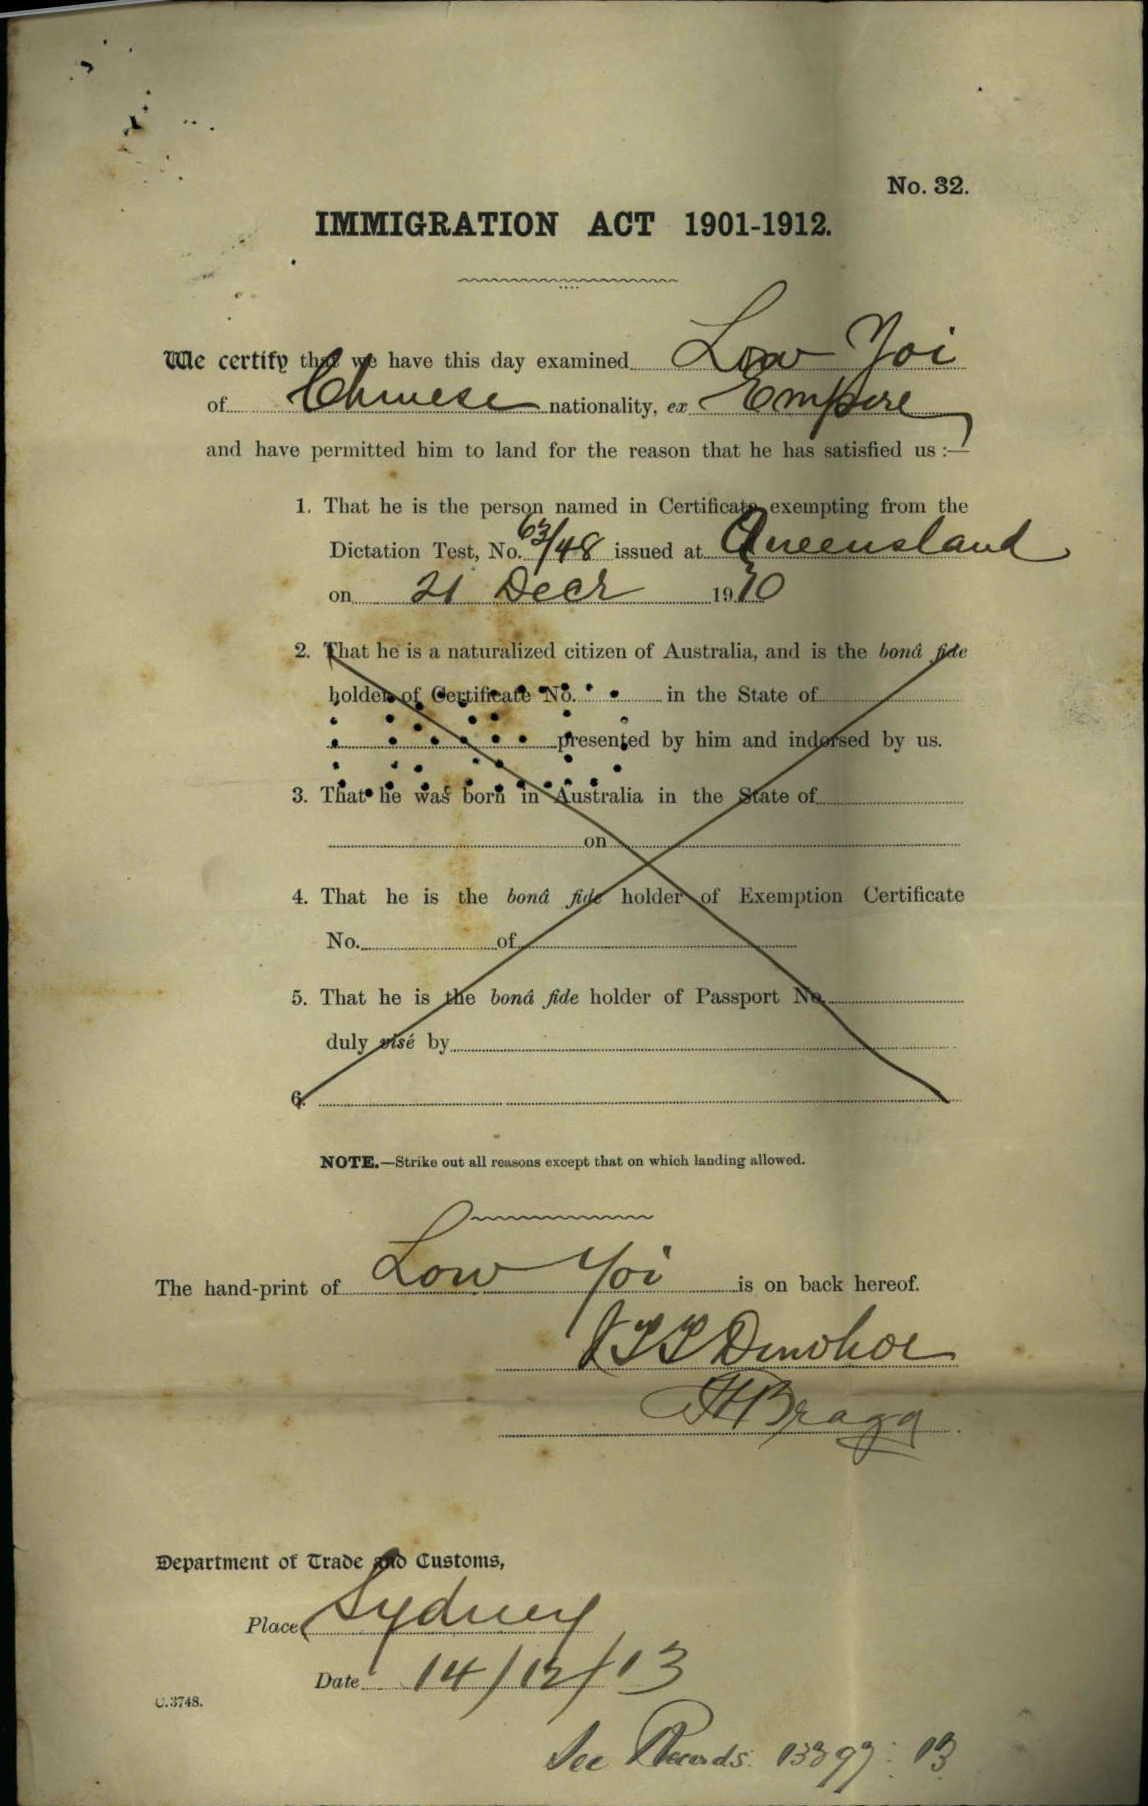 No. 32.
IMMIGRATION ACT 1901-1912.
We certify that we have this day examined Low Yoi
of Chinese nationality, ex Empire
and have permitted him to land for the reason that he has satisfied us :—
1. That he is the person named in Certificate exempting from the
Dictation Test, No. 63/48 issued at Queensland
on 21 Decr 1910
2. That he is a naturalized citizen of Australia, and is the bonâ fide
holder of Certificate No. in the State of
presented by him and indorsed by us.
3. That he was born in Australia in the State of
on
4. That he is the bonâ fide holder of Exemption Certificate
No. of
5. That he is the bonâ fide holder of Passport No.
duly visé by
6.
NOTE.—Strike out all reasons except that on which landing allowed.
The hand-print of Low Yoi is on back hereof.
JTT Donohoe
FHBragg
Department of Trade and Customs,
Place Sydney
Date 14/12/13
C.3748.
See Records 13397 : 13